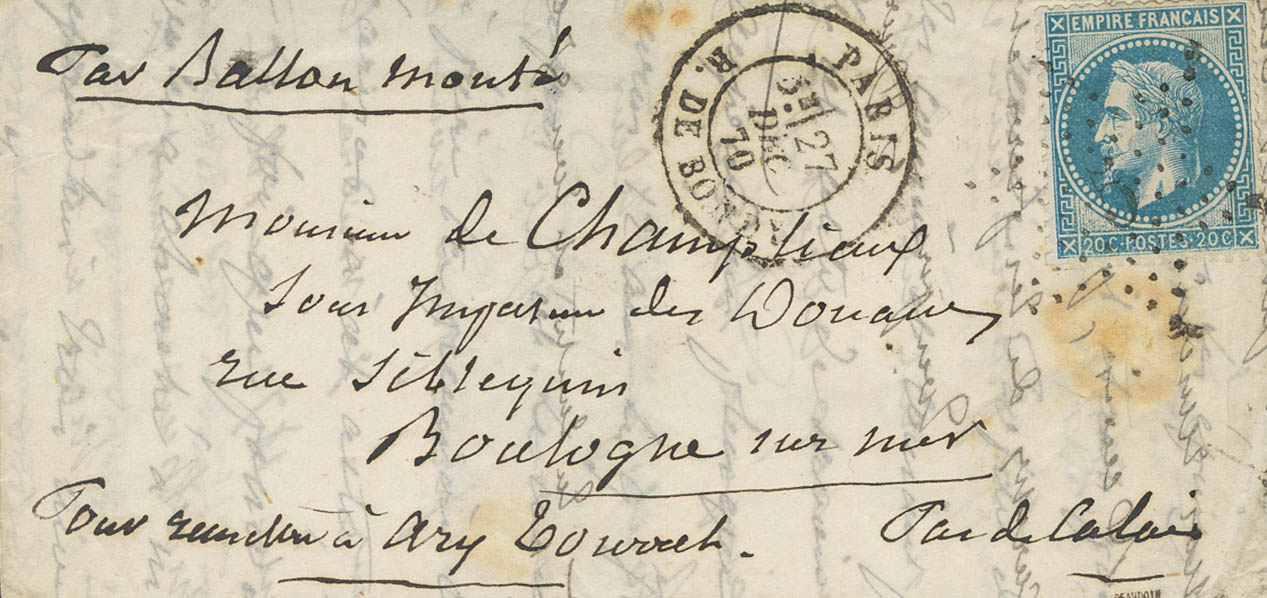 Par Ballon monté
PARIS
R. DE BONDY
5E 27
DEC
70
EMPIRE FRANÇAIS
20C-POSTES-20C
Monsieur de Champliaux
Sous Inspecteur des Douanes
rue Siblequin
Boulogne sur mer
Pour remettre à Ary
Pas de Calais
BEAUDOIN